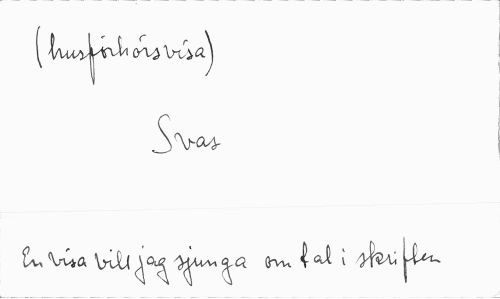 (husförhörsvisa)
Svas
En visa vill jag sjunga om tal i skriften